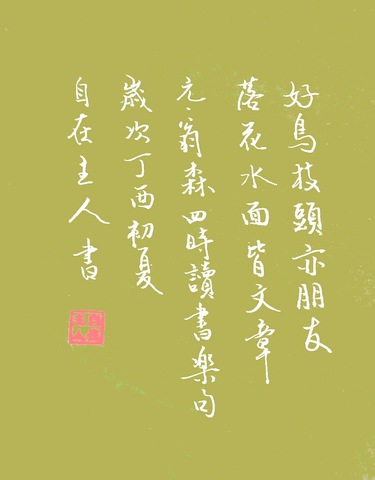 好鳥枝頭亦朋友
落花水面皆文章
元·翁森四時讀書樂句
歲次丁酉初夏
自在主人書